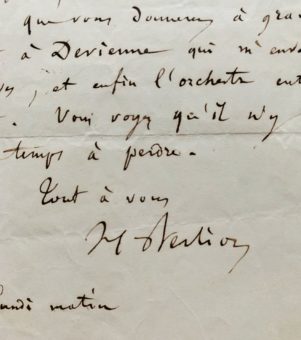 que vous donnerez à gra
à Devienne qui m'env
; et enfin l'orchestr ent
. Vous voyez qu'il n'y
temps à perdre.
Tout à vous
H Berlioz
undi matin